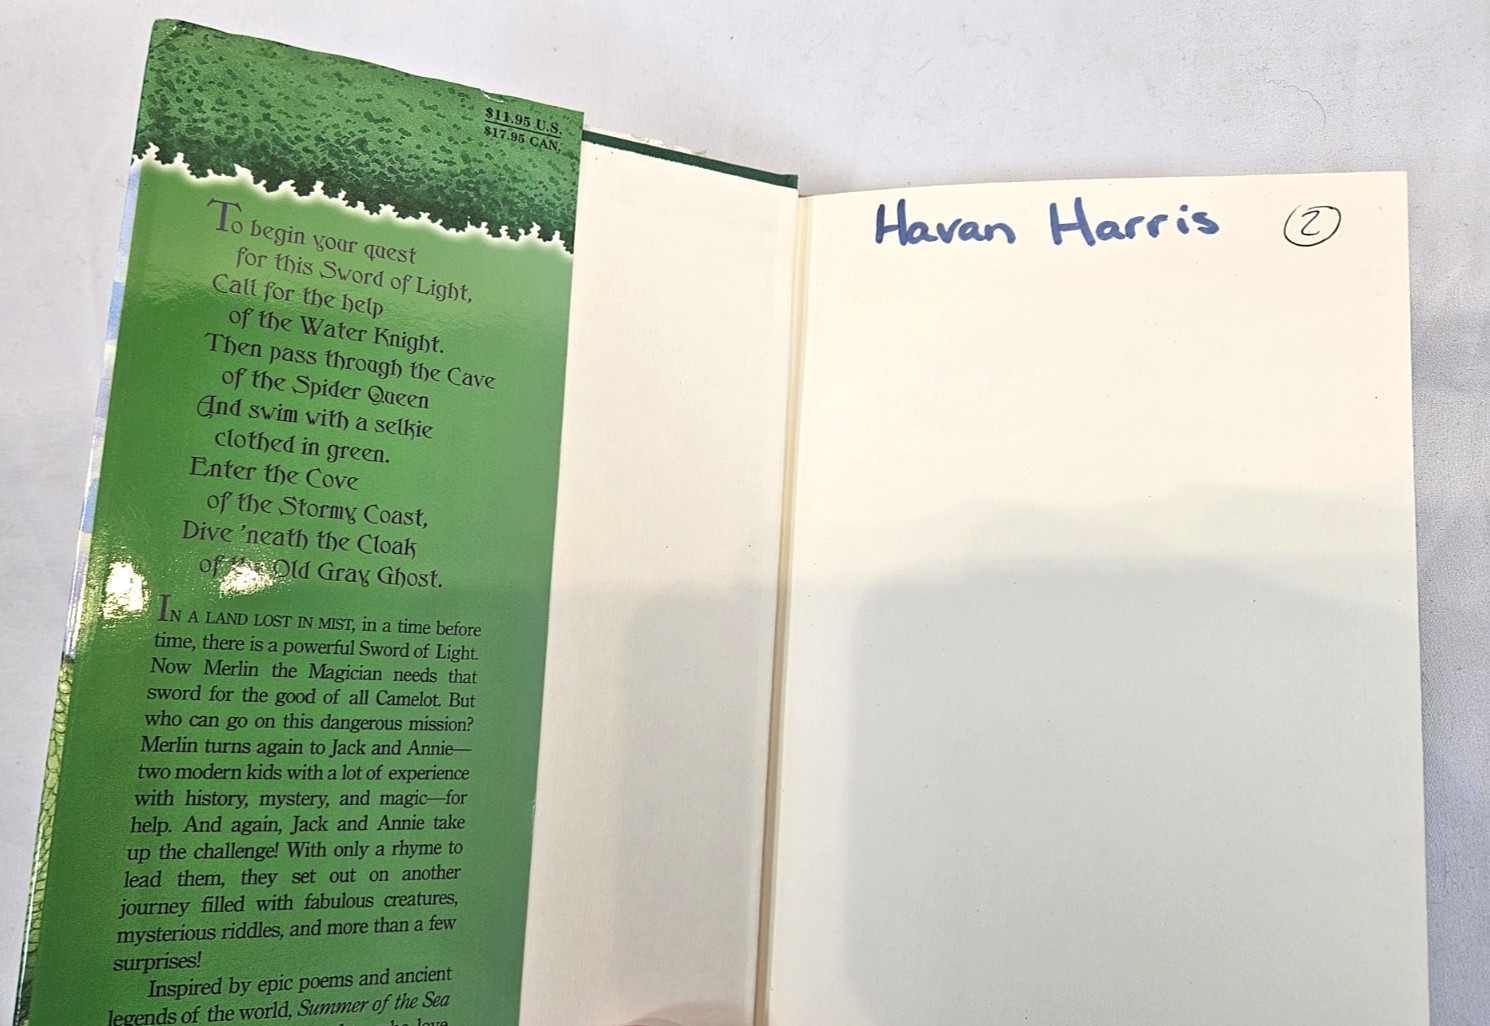 $11.95 U.S.
$17.95 CAN.
To begin your quest
for this Sword of Light,
Call for the help
of the Water Knight.
Then pass through the Cave
of the Spider Queen
And swim with a selkie
clothed in green.
Enter the Cove
of the Stormy Coast,
Dive ’neath the Cloak
of the Old Gray Ghost.
IN A LAND LOST IN MIST, in a time before
time, there is a powerful Sword of Light.
Now Merlin the Magician needs that
sword for the good of all Camelot. But
who can go on this dangerous mission?
Merlin turns again to Jack and Annie—
two modern kids with a lot of experience
with history, mystery, and magic—for
help. And again, Jack and Annie take
up the challenge! With only a rhyme to
lead them, they set out on another
journey filled with fabulous creatures,
mysterious riddles, and more than a few
surprises!
Inspired by epic poems and ancient
legends of the world, Summer of the Sea
love
Havan Harris 2